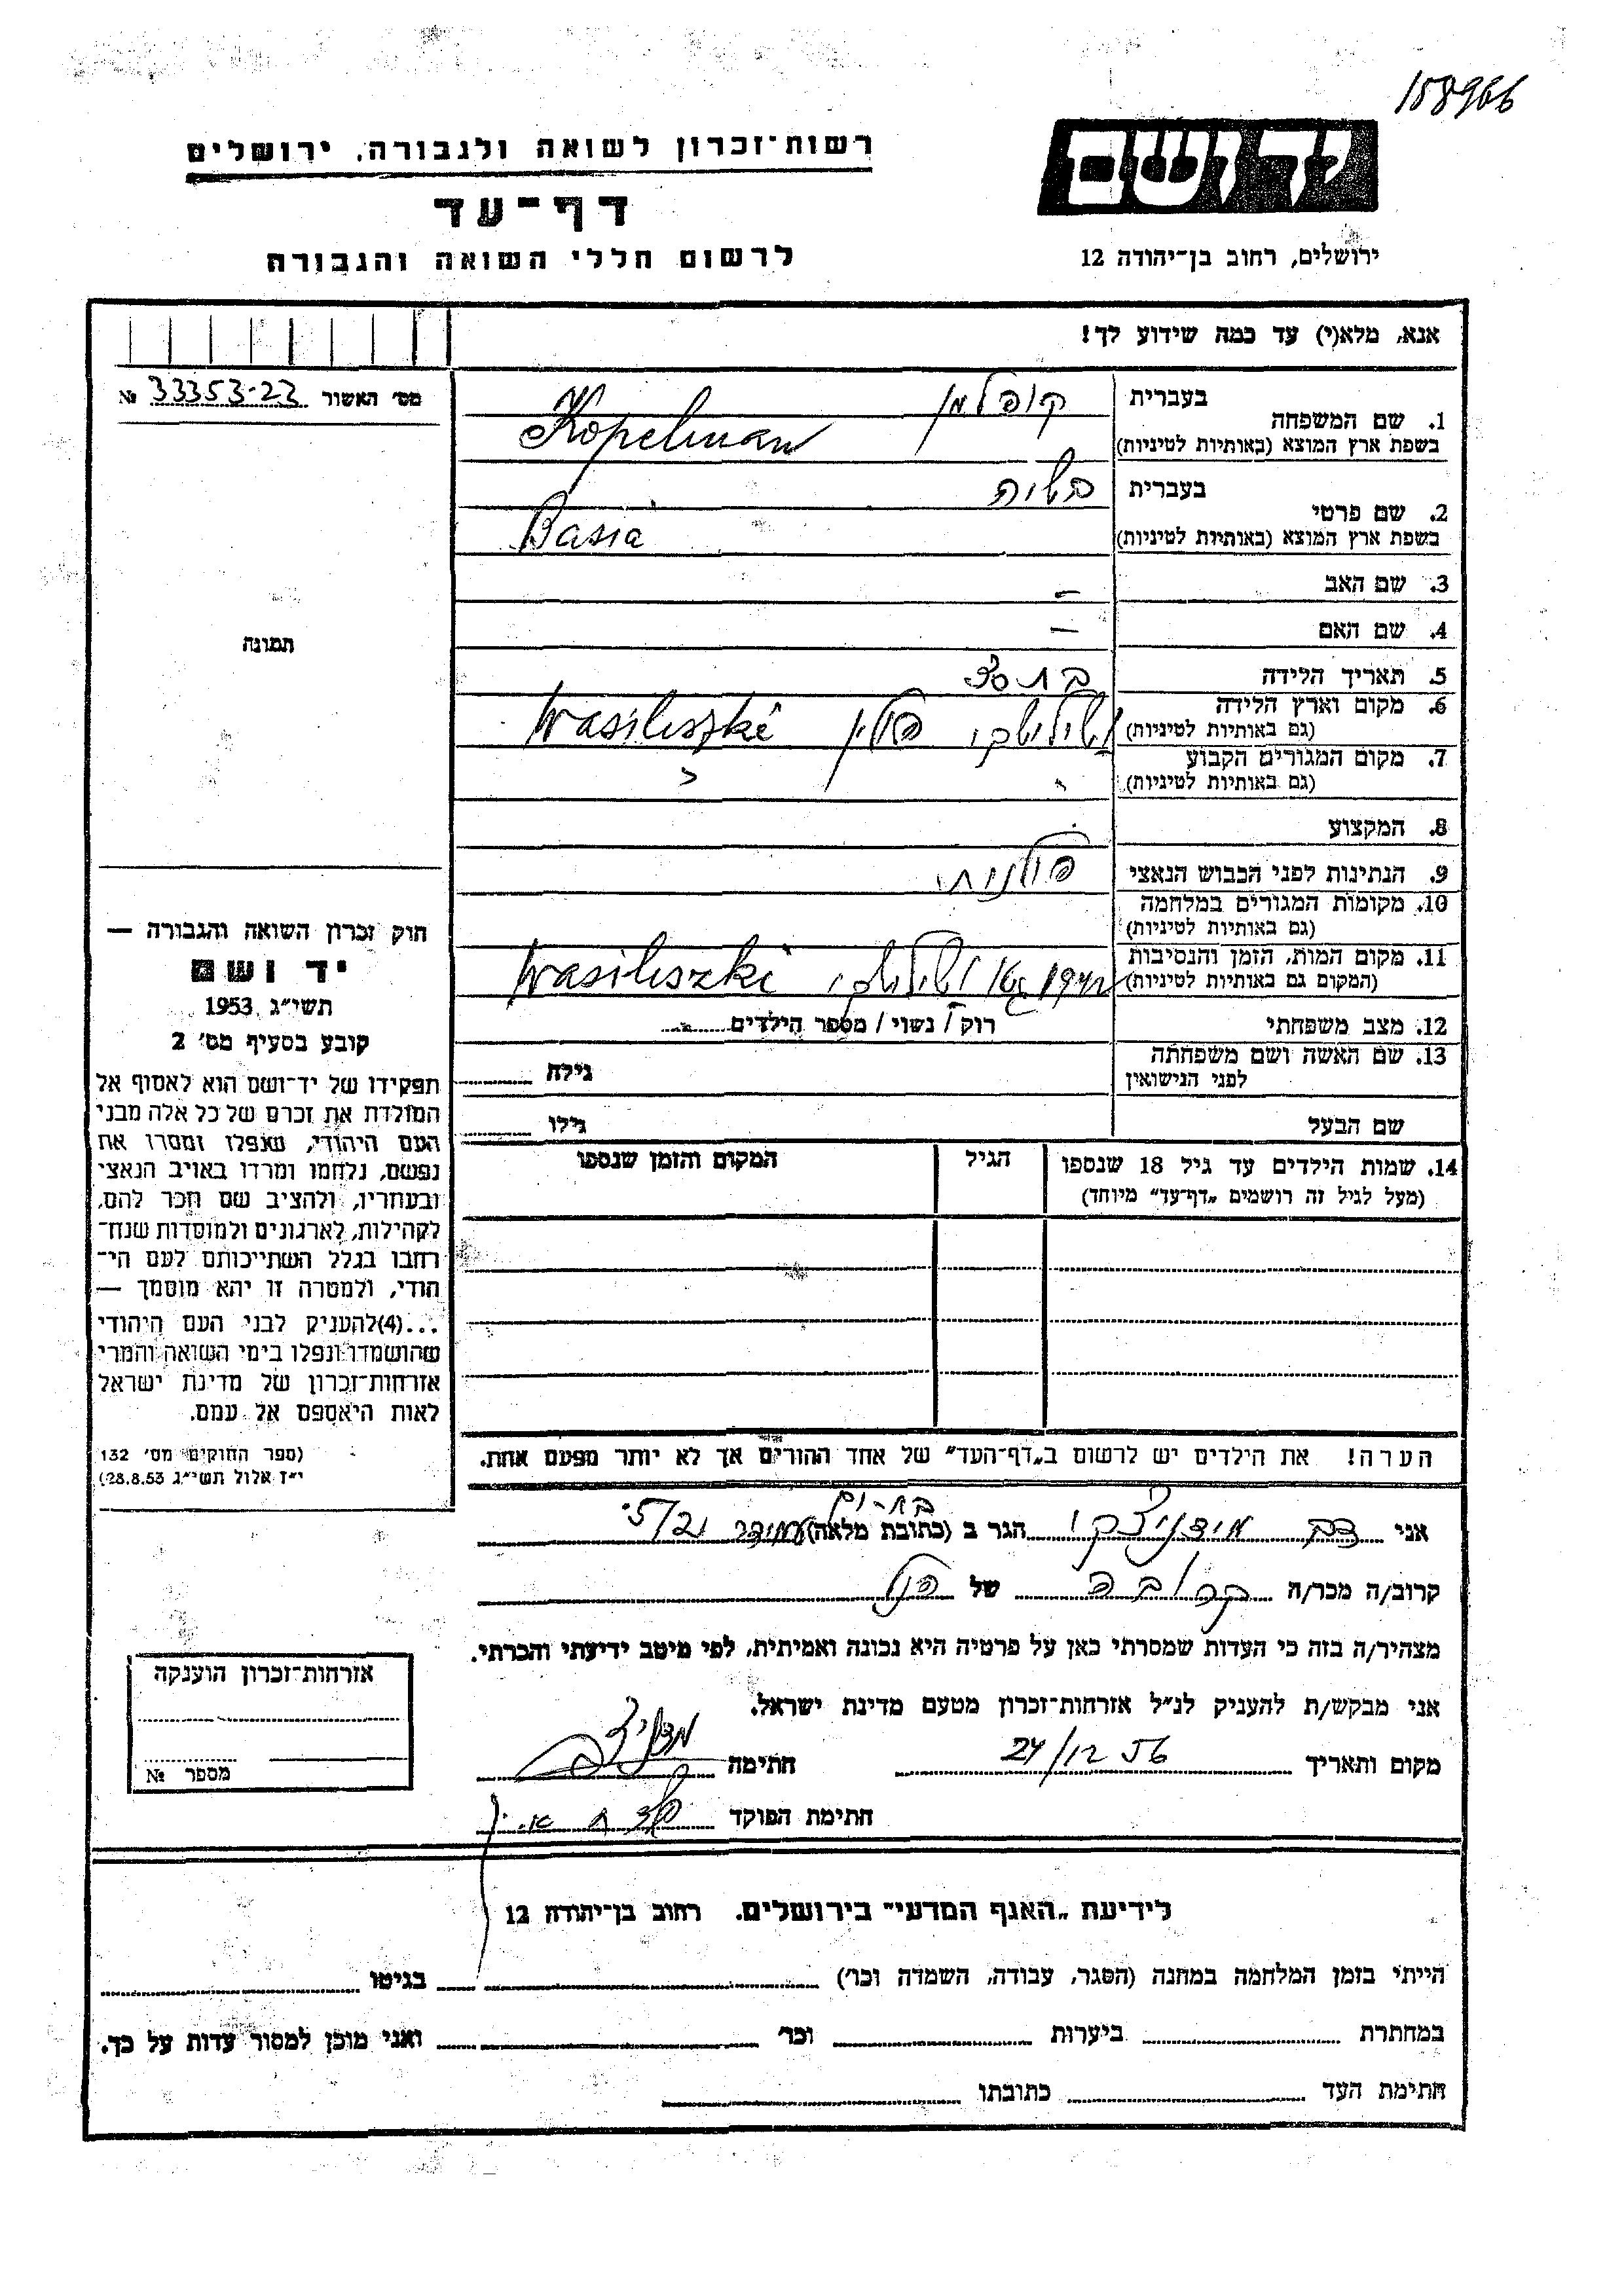 158966
יד ושם
ירושלים, רחוב בן־יהודה 12
רשות־זכרון לשואה ולגבורה, ירושלים
דף־עד
לרשום חללי השואה והגבורה
אנא, מלא(י) עד כמה שידוע לך!
מס' האשור 33353-23 №
תמונה
1. שם המשפחה בעברית קופלמן
בשפת ארץ המוצא (באותיות לטיניות) Kopelman
2. שם פרטי בעברית בשיה
בשפת ארץ המוצא (באותיות לטיניות) Basia
3. שם האב –
4. שם האם –
5. תאריך הלידה בת
6. מקום וארץ הלידה
(גם באותיות לטיניות) ושילישקי פולין Wasiliszki
7. מקום המגורים הקבוע
(גם באותיות לטיניות)
8. המקצוע
9. הנתינות לפני הכבוש הנאצי פולנית
10. מקומות המגורים במלחמה
(גם באותיות לטיניות)
11. מקום המות, הזמן והנסיבות
(המקום גם באותיות לטיניות) 1942 גטו ושילישקי Wasiliszki
12. מצב משפחתי רוק / נשוי / מספר הילדים
13. שם האשה ושם משפחתה
לפני הנישואין גילה
שם הבעל גילו
14. שמות הילדים עד גיל 18 שנספו הגיל המקום והזמן שנספו
(מעל לגיל זה רושמים „דף־עד” מיוחד)
הערה! את הילדים יש לרשום ב„דף־העד” של אחד ההורים אך לא יותר מפעם אחת.
חוק זכרון השואה והגבורה —
יד ושם
תשי״ג 1953
קובע בסעיף מס' 2
תפקידו של יד־ושם הוא לאסוף אל
המולדת את זכרם של כל אלה מבני
העם היהודי, שנפלו ומסרו את
נפשם, נלחמו ומרדו באויב הנאצי
ובעוזריו, ולהציב שם וזכר להם,
לקהילות, לארגונים ולמוסדות שנח־
רחבו בגלל השתייכותם לעם הי־
הודי, ולמטרה זו יהא מוסמך —
...(4)להעניק לבני העם היהודי
שהושמדו ונפלו בימי השואה והמרי
אזרחות־זכרון של מדינת ישראל
לאות היאספם אל עמם.
(ספר החוקים מס' 132
י״ז אלול תשי״ג 28.8.53)
אני דב הגר ב (כתובת מלאה) בת-ים 5/21
קרוב/ה מכר/ה קרובה של הנ״ל
מצהיר/ה בזה כי העדות שמסרתי כאן על פרטיה היא נכונה ואמיתית, לפי מיטב ידיעתי והכרתי.
אני מבקש/ת להעניק לנ״ל אזרחות־זכרון מטעם מדינת ישראל.
מקום ותאריך 24/12 56 חתימה
חתימת הפוקד
אזרחות־זכרון הוענקה
מספר №
לידיעת „האגף המדעי” בירושלים. רחוב בן־יהודה 12
הייתי בזמן המלחמה במחנה (הסגר, עבודה, השמדה וכו') בגיטו
במחתרת ביערות וכו' ואני מוכן למסור עדות על כך.
חתימת העד כתובתו